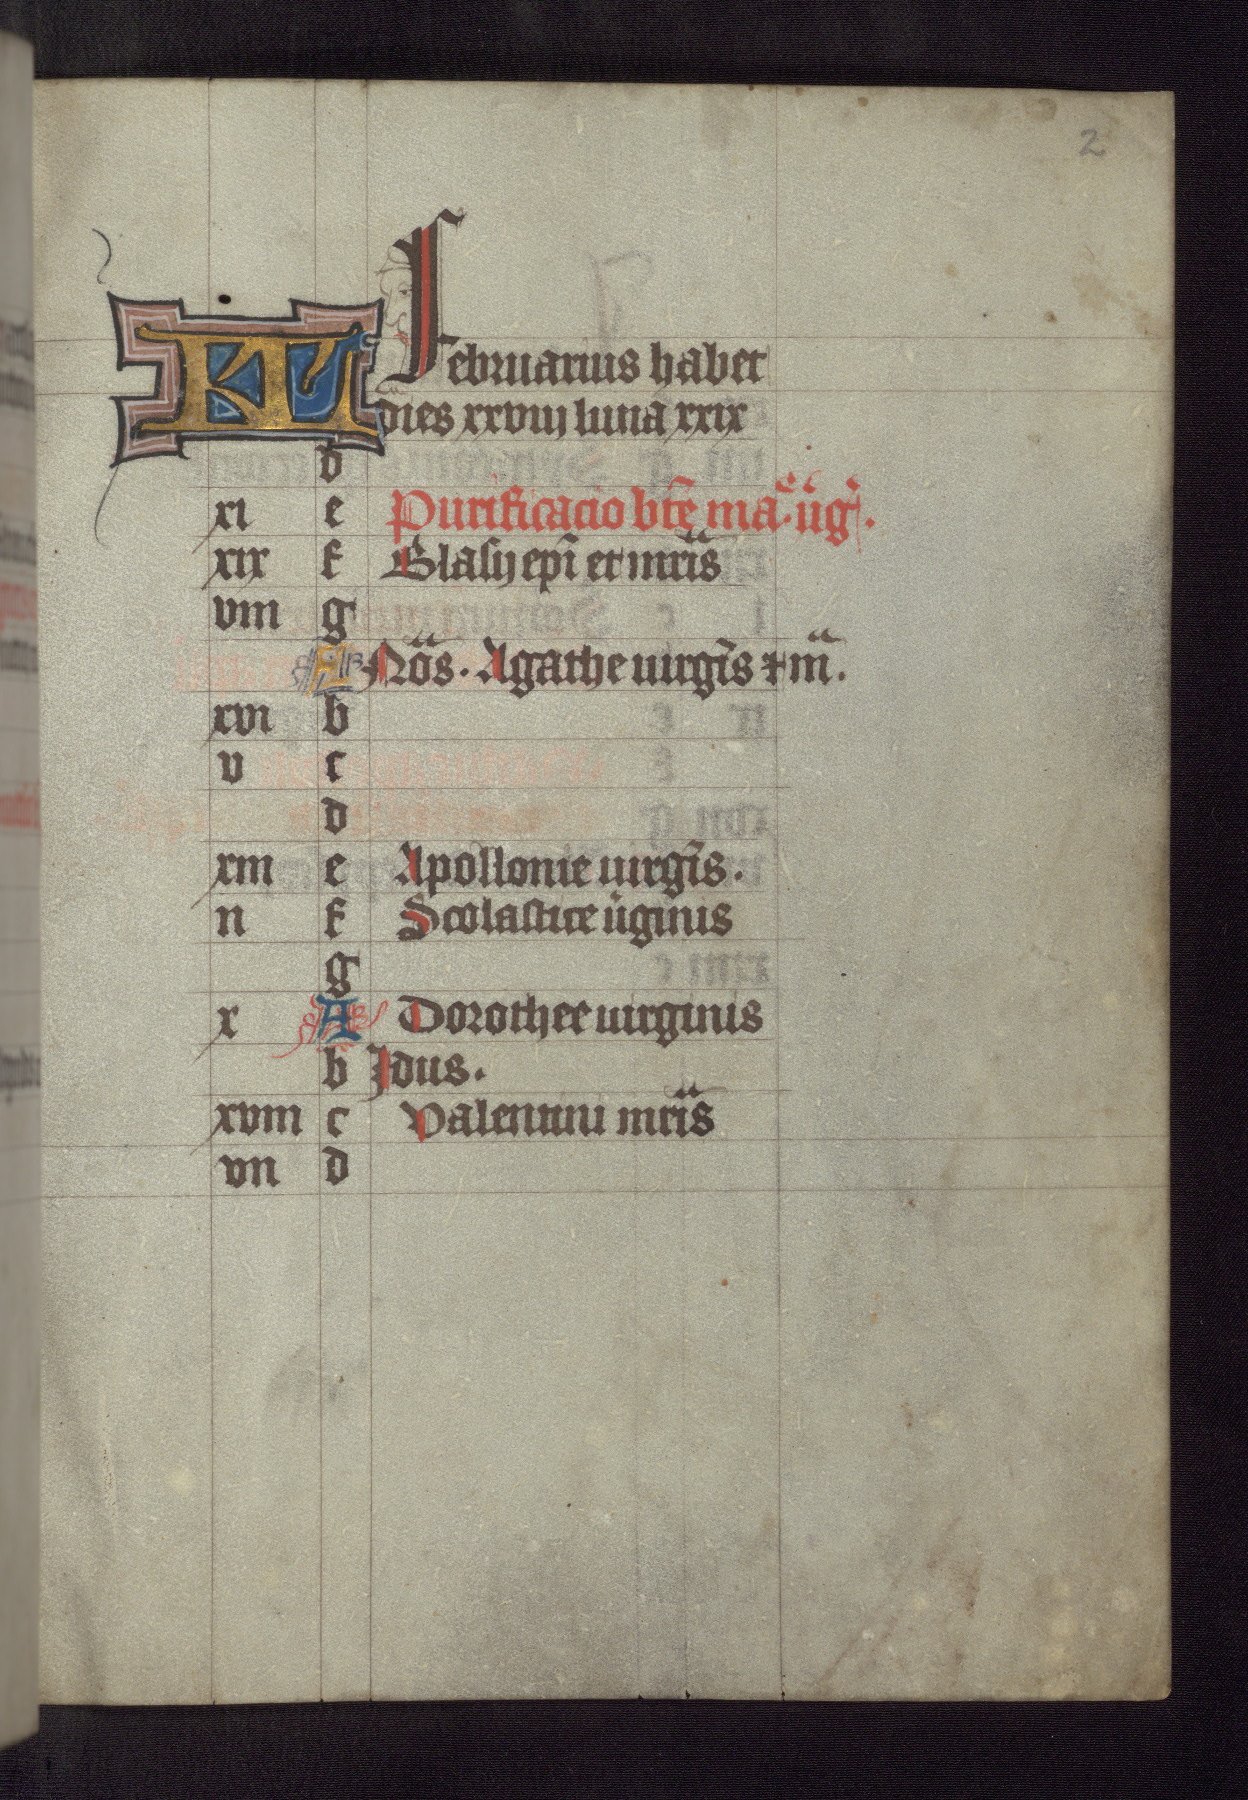 2
KL Februarius habet
dies xxviij luna xxix
d
xi e Purificacio bte ma. uig.
xix f Blasij epi et mris
viii g
A Nos. Agathe uirgis + m.
xvi b
v c
d
xiii e Apollonie uirgis.
ii f Scolastice uginis
g
x A Dorothee uirginis
b Idus.
xviii c Valentini mris
vii d